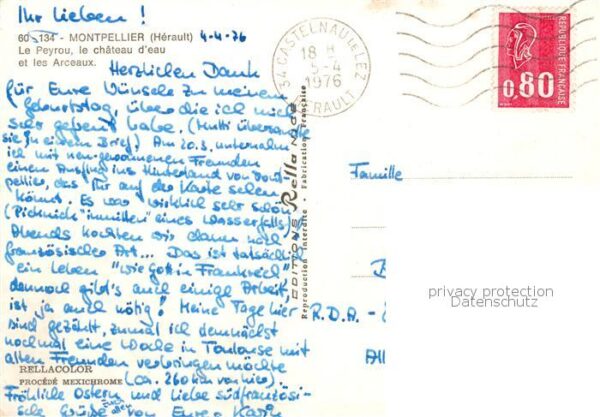 Ihr Lieben!
60-134 - MONTPELLIER (Hérault) 4-4-76
Le Peyrou, le château d'eau
et les Arceaux.
Herzlichen Dank
für Eure Wünsche zu meinem
Geburtstag, über die ich mich
sehr gefreut habe. (Mutti übersandte
sie in einem Brief) Am 20.3. unternahm
ich mit neu gewonnenen Freunden
einen Ausflug ins Hinterland von Mont-
pellier, das Ihr auf der Karte sehen
könnt. Es war wirklich sehr schön
(Picknick "inmitten" eines Wasserfalls)
Abends kochten wir dann nach
französischer Art... Das ist tatsächl.
ein Leben "wie Gott in Frankreich"
dennoch gibt's auch einige Arbeit,
ist ja auch nötig! Meine Tage hier
sind gezählt, zumal ich demnächst
nochmal eine Woche in Toulouse mit
alten Freunden verbringen möchte
RELLACOLOR
PROCÉDÉ MEXICHROME (ca. 260 km von hier).
Fröhliche Ostern und liebe südfranzösi-
sche Grüße von Eurer Karin
EDITIONS Rella NICE
Reproduction Interdite - Fabrication Française
34 CASTELNAU LE LEZ
18 H
5-4
1976
HERAULT
REPUBLIQUE FRANÇAISE
0,80
Familie
R.D.A.
privacy protection
Datenschutz